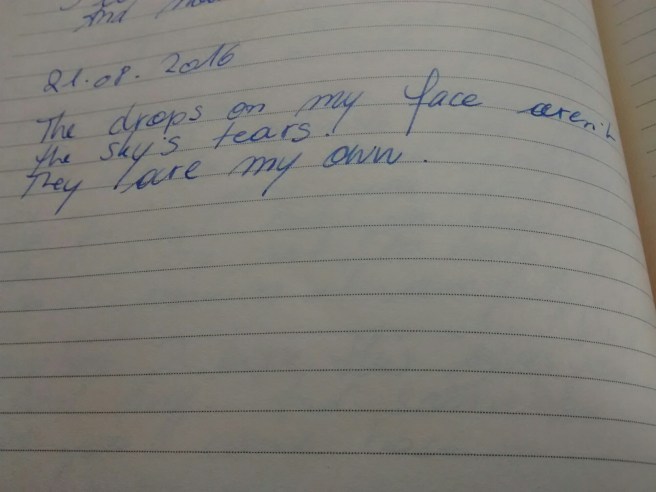 and
21.08.2016
The drops on my face aren't
the sky's tears.
They are my own.